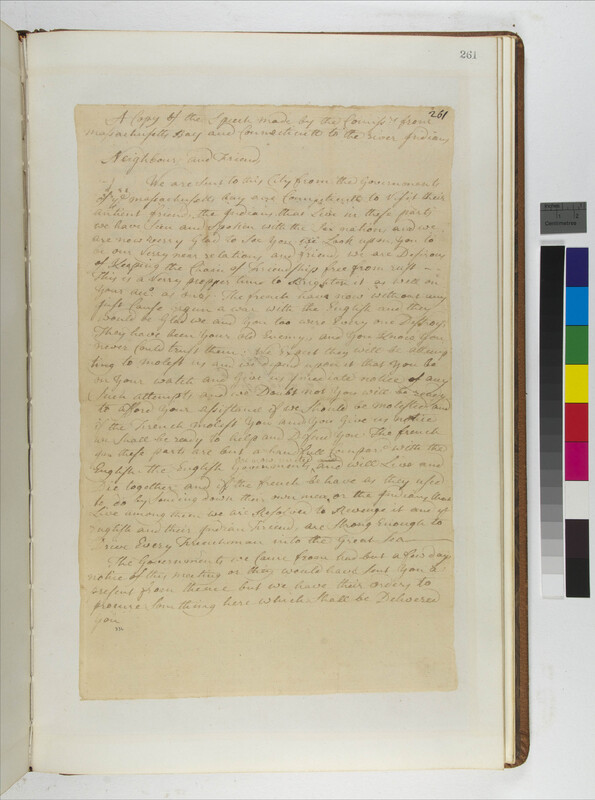 261
261
A Copy of the Speech made by the Comiss.rs from
Massachusetts Bay and Connecticutt to the river Indians
Neighbour and Friend
We are sent to this City from the Governments
of ye massachusetts bay and Connecticutt to Visit their
antient friend, the Indians that Live in these parts
we have Seen and Spoken with the Six nation and we
are now verry Glad to See You we Look upon You to
in our Verry near relations and friend, we are Desirous
of Keeping the Chain of Friendship free from rust —
This is a Verry propper time to Brighten it as well on
Your acc.t as ours The french have now without any
just Cause begun a war with the English and they
would be Glad we and You too were Every one Destroy'd
They have been Your old Enemy, and You Know You
never Could trust them. We expect they will be attemp
ting to molest us and we depend upon it that You be
on Your watch and Give us immediate notice of any
Such attempts and we Doubt not You will be ready
to afford Your assistance if we Should be molested and
if the French molest You and You Give us notice
we Shall be ready to help and Defend You The french
in these parts are but a handfull Compar'd with the
English the English Governments are united and will Live and
Die together and if the french behave as they use
to do by Sending down their own men, or the Indians that
Live among them we are Resolved to Revenge it and ye
English and their Indian Friend, are Strong Enough to
Drive Every Frenchman into the Great Sea
The Governments we came from had but a few days
notice of this meeting or they would have Sent You a
present from thence but we have their orders to
procure Somthing here which Shall be Delivered
You